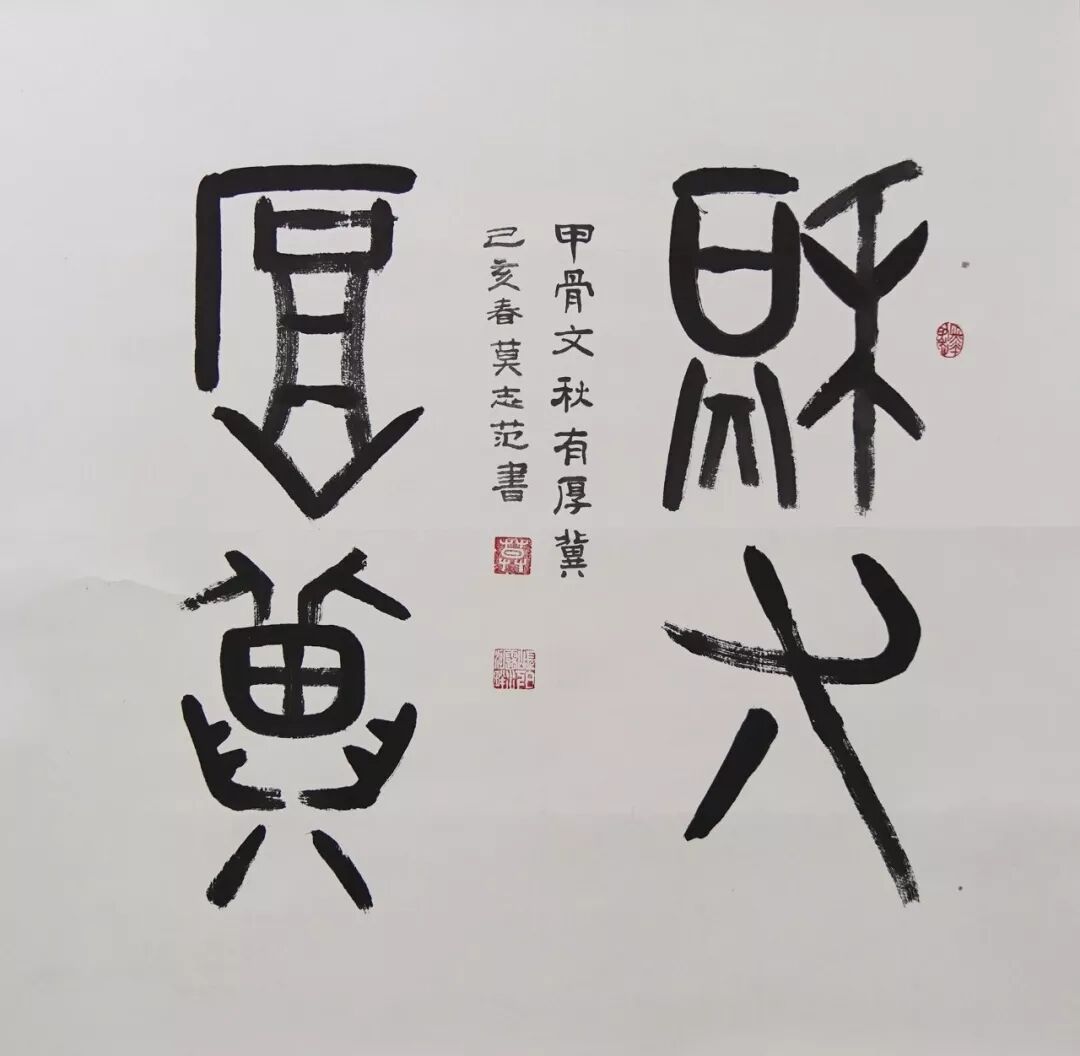 秋有
厚冀
甲骨文秋有厚冀
己亥春莫志范書